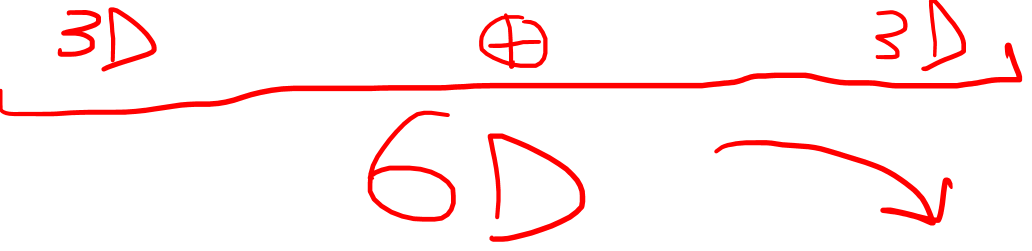 3D ⊕ 3D
6D